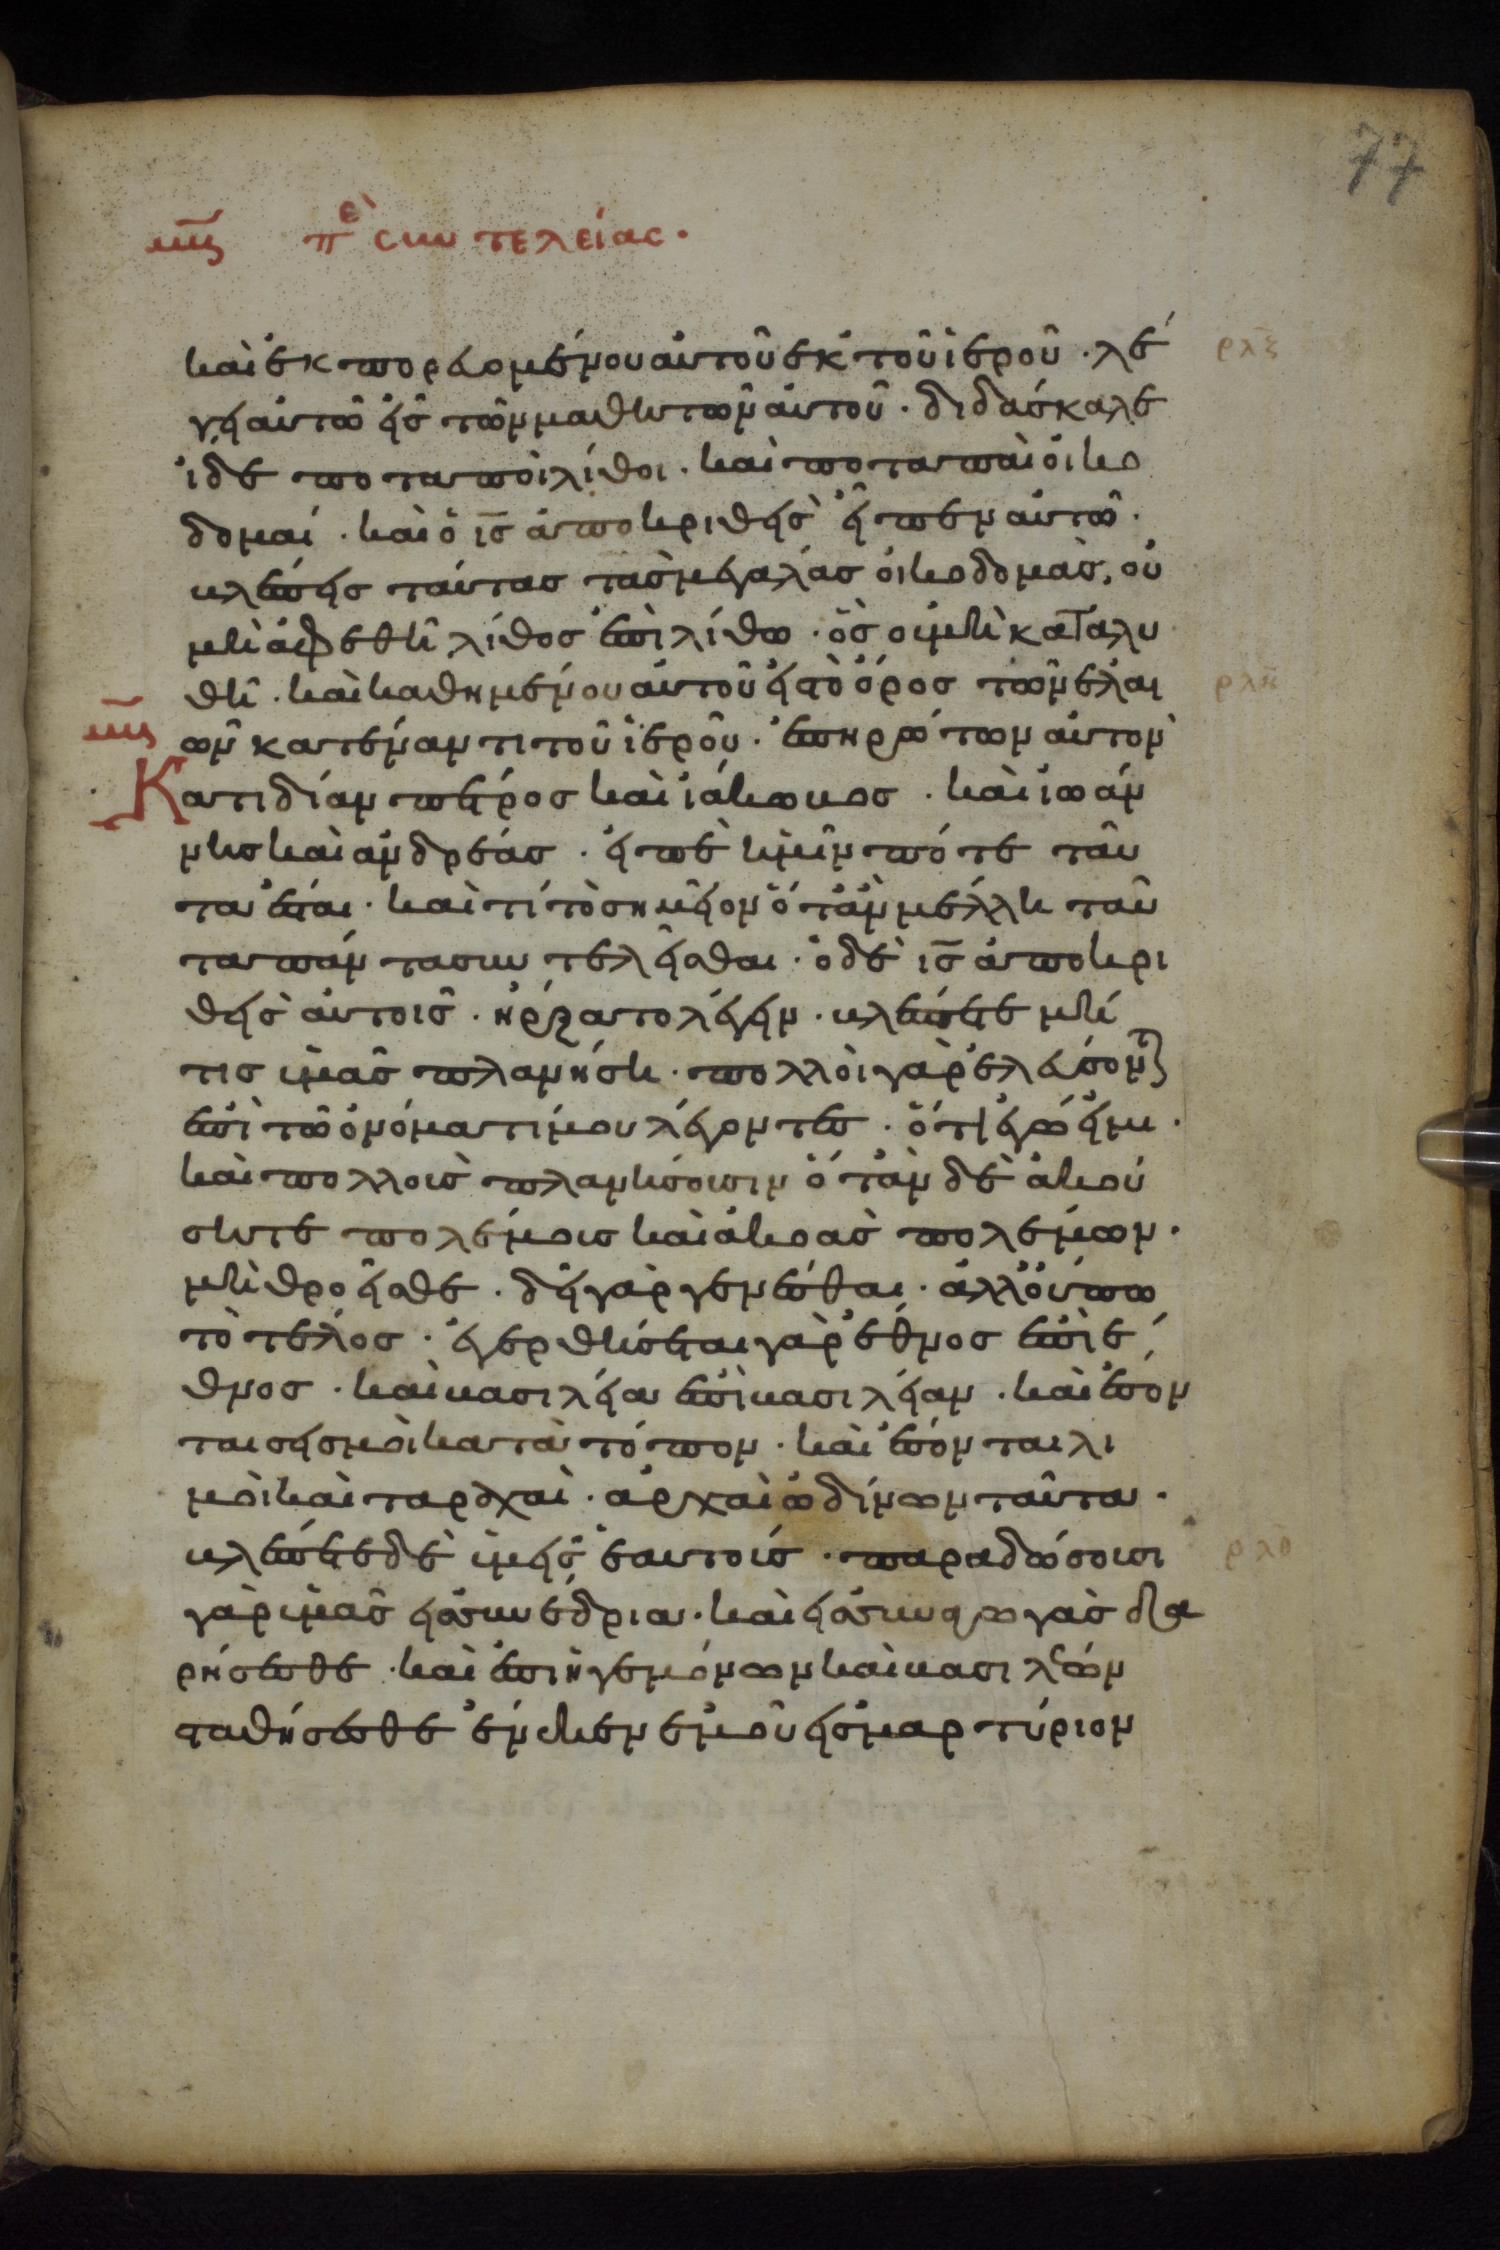 77
πε συντελείας.
καὶ ἐκπορευομένου αὐτοῦ ἐκ τοῦ ἱεροῦ · λέ
γει αὐτῶ εἷς τῶν μαθητῶν αὐτοῦ · διδάσκαλε
ἴδε ποταποὶ λίθοι · καὶ ποταπαὶ οἰκο
δομαί · καὶ ὁ ις ἀποκριθεὶς εἶπεν αὐτῶ ·
βλέπεις ταύτας τὰς μεγάλας οἰκοδομάς, οὐ
μὴ ἀφεθῆ λίθος ἐπὶ λίθω · ὃς οὐ μὴ καταλυ
θῆ · καὶ καθημένου αὐτοῦ εἰς τὸ ὄρος τῶν ἐλαι
ῶν κατέναντι τοῦ ἱεροῦ · ἐπηρώτων αὐτὸν
Κατιδίαν πέτρος καὶ ἰάκωβος · καὶ ἰωάν
νης καὶ ἀνδρέας · εἰπὲ ἡμῖν πότε ταῦ
τα ἔσται · καὶ τί τὸ σημεῖον ὅταν μέλλη ταῦ
τα πάντα συντελεῖσθαι · ὁ δὲ ις ἀποκρι
θεὶς αὐτοῖς · ἤρξατο λέγειν · βλέπετε μή
τις ὑμᾶς πλανήση · πολλοὶ γὰρ ἐλεύσοντ
ἐπὶ τῶ ὀνόματί μου λέγοντες · ὅτι ἐγώ εἰμι ·
καὶ πολλοὺς πλανήσουσιν ὅταν δὲ ἀκού
σητε πολέμους καὶ ἀκοὰς πολέμων ·
μὴ θροεῖσθε · δεῖ γὰρ γενέσθαι · ἀλλ οὔπω
τὸ τέλος · ἐγερθήσεται γὰρ ἔθνος ἐπὶ ἔ
θνος · καὶ βασιλεία ἐπὶ βασιλείαν · καὶ ἔσον
ται σεισμοὶ κατὰ τόπον · καὶ ἔσονται λι
μοὶ καὶ ταραχαὶ · ἀρχαὶ ὠδίνων ταῦτα ·
βλέπετε δὲ ὑμεῖς ἑαυτούς · παραδώσουσι
γὰρ ὑμᾶς εἰς συνέδρια · καὶ εἰς συναγωγὰς δα
ρήσεσθε · καὶ ἐπὶ ἡγεμόνων καὶ βασιλέων
σταθήσεσθε ἕνεκεν ἐμοῦ εἰς μαρτύριον
ρλζ
ρλη
ρλθ